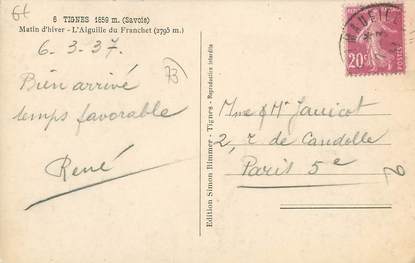 6t
6 TIGNES 1659 m. (Savoie)
Matin d'hiver - L'Aiguille du Franchet (2795 m.)
6.3.37.
73
Bien arrivé
temps favorable
René
Edition Simon Bimmer - Tignes - Reproduction interdite
20c
POSTES
Mme & Mr Janicot
2, r de Candolle
Paris 5e